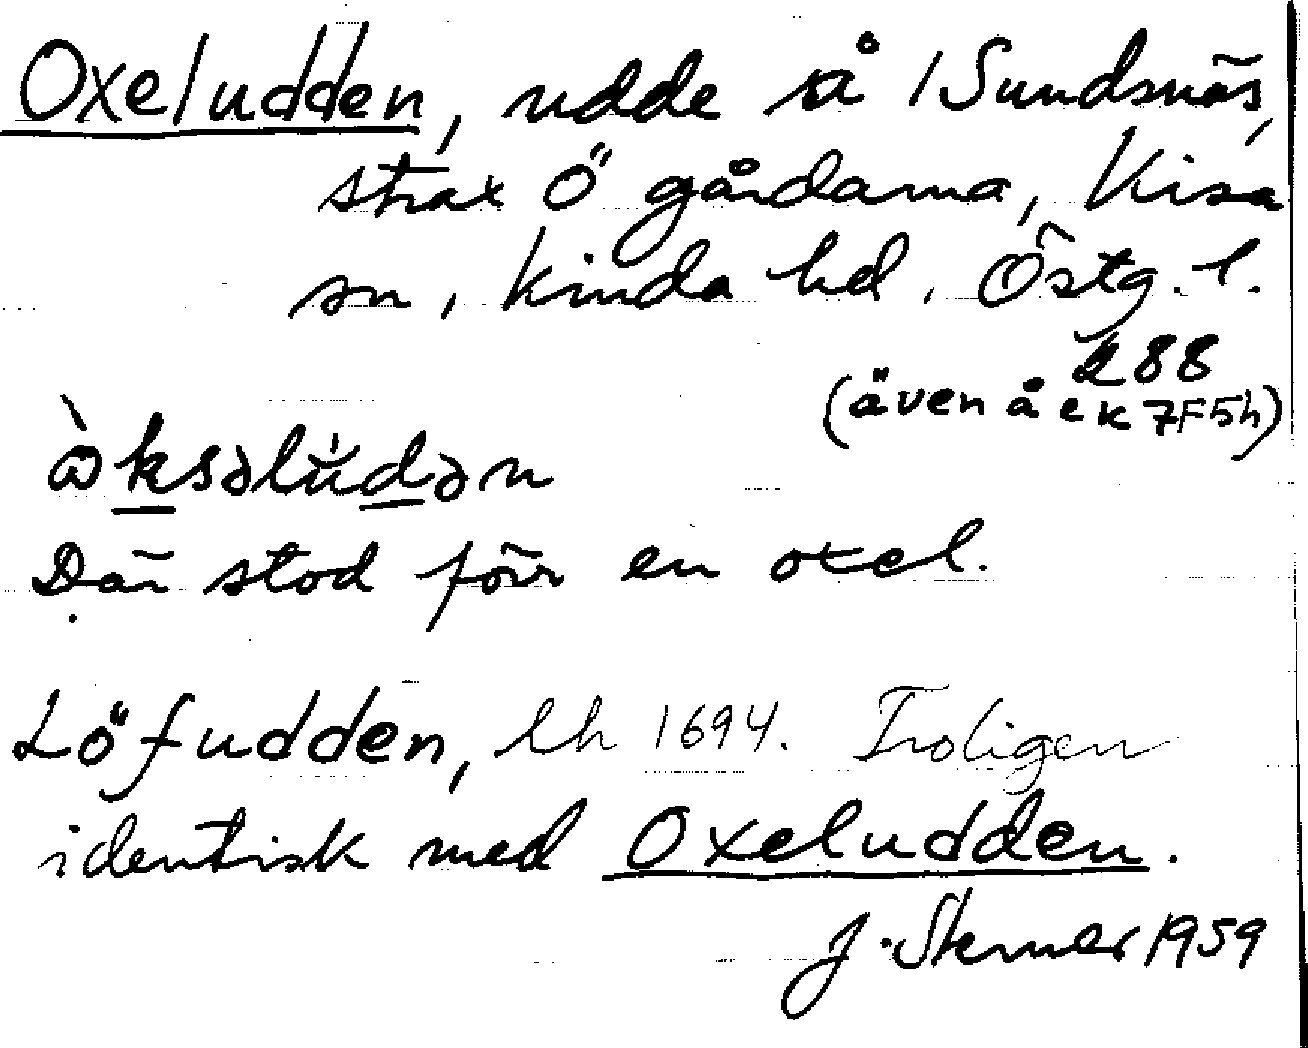 Oxeludden, udde å 1 Sundsnäs,
strax Ö gårdarna, Kisa
sn, Kinda hd, Östg. l.
288
(även å ek 7F5h)
Där stod förr en oxel.
Löfudden, lh 1694. Troligen
identisk med Oxeludden.
J. Sterner 1959